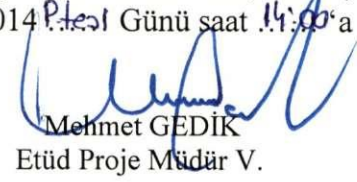 014 P.tesi Günü saat 14:00'a
Mehmet GEDİK
Etüd Proje Müdür V.